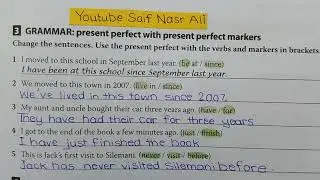 Youtube Saif Nasr Ali
3 GRAMMAR: present perfect with present perfect markers
Change the sentences. Use the present perfect with the verbs and markers in brackets.
1 I moved to this school in September last year. (be at / since)
I have been at this school since September last year.
2 We moved to this town in 2007. (live in / since)
We've lived in this town since 2007.
3 My aunt and uncle bought their car three years ago. (have / for)
They have had their car for three years
4 I got to the end of the book a few minutes ago. (just / finish)
I have just finished the book
5 This is Jack's first visit to Silemani. (never / visit / before)
Jack has never visited Silemani before.